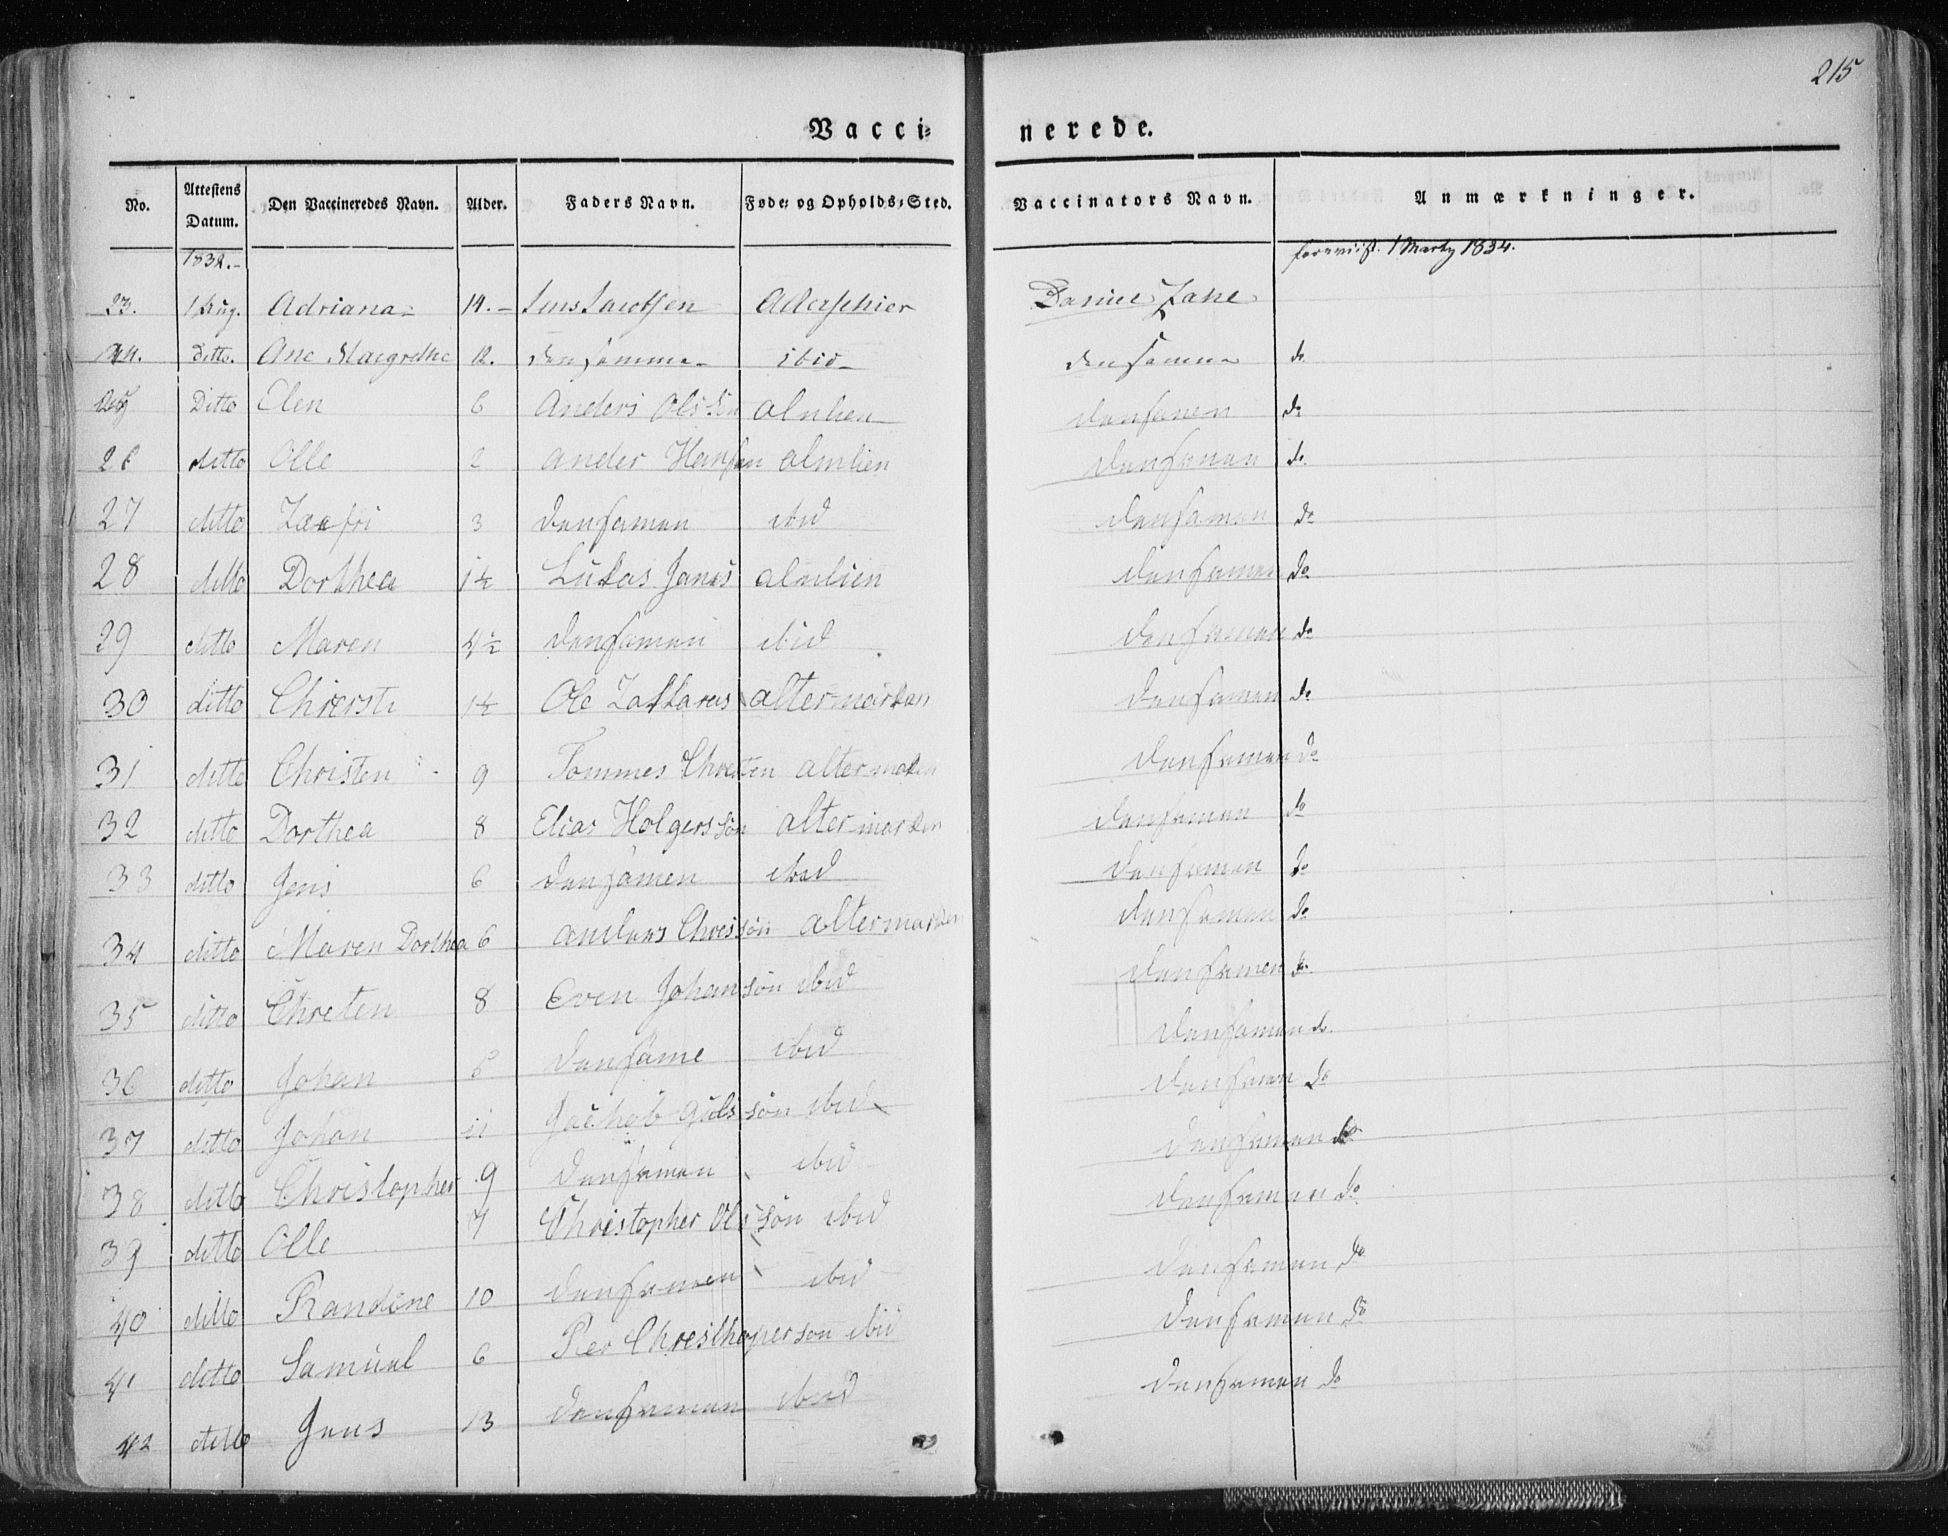 215
Vacci= nerede.
No. Attestens Datum. Den Vaccineredes Navn. Alder. Faders Navn. Føde= og Opholds=Sted. Vaccinators Navn. Anmærkninger.
1832.- 1834.
23. 1 Aug. Adriana 14.- Jens Daniel
24. Ditto. Ane Margrethe 12. den samme ibid densamme do
Ditto Elen 6 Anders Olssøn almlien densamen do
26 ditto Olle 2 ander Hansen almlien densamen do
27 ditto 3 densamen ibid densamen do
28 ditto Dorthea 1½ Lukas Janus almlien densamen do
29 ditto Maren 4½ densamen ibid densamen do
30 ditto Chiersti 1½ Ole Zakkareus altermarken densamen do
31 ditto Christen 9 Tommes Christen altermarken densamen do
32 ditto Dorthea 8 Elias Holgerssøn altermarken densamen do
33 ditto Jens 6 densamen ibid densamen do
34 ditto Maren Dorthea 6 anders altermarken densamen do
35 ditto Chresten 8 Even Johansøn ibid densamen do
36 ditto Johan 6 densame ibid densamen do
37 ditto Johan 11 Jachob ibid densamen do
38 ditto Christopher 9 densamen ibid densamen do
39 ditto Olle 7 Christopher Olssøn ibid densamen do
40 ditto Randine 10 densamen ibid densamen do
41 ditto Samuel 6 Per Christhopersøn ibid densamen do
42 ditto Jens 13 densamen ibid densamen do